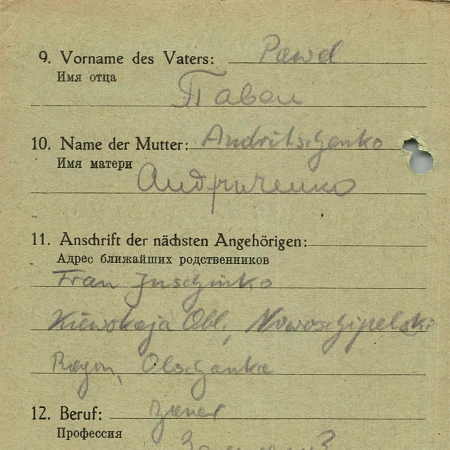 9. Vorname des Vaters: Pawel
Имя отца
Павел
10. Name der Mutter: Andritschenko
Имя матери
Андриченко
11. Anschrift der nächsten Angehörigen:
Адрес ближайших родственников
Frau Juschinko
Kiewskaja Obl., Nowoschipelski
Rayon, Olschanka
12. Beruf:
Профессия